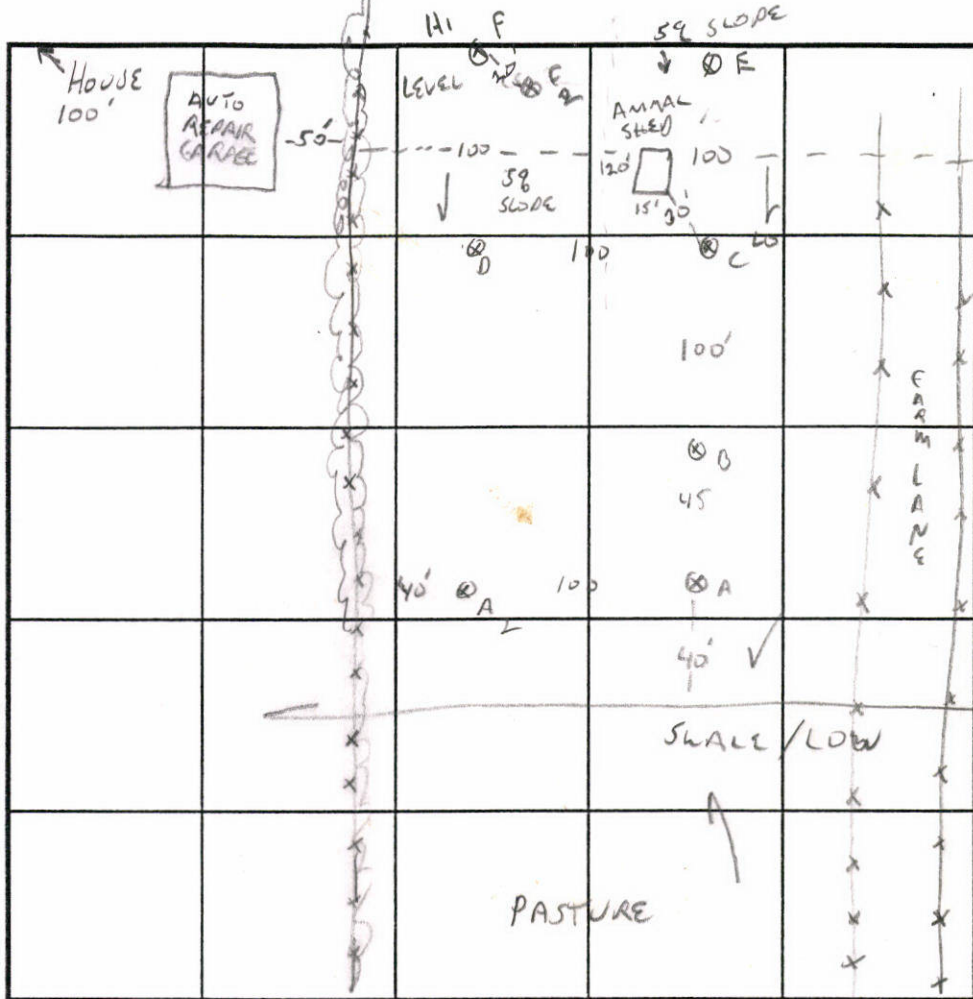 HI F
5% SLOPE
E
HOUSE
100'
AUTO
REPAIR
GARAGE
-50'-
LEVEL
ANIMAL
SHED
120'
15'
30'
100
100
5%
SLOPE
D
100
C
100'
B
45
FARM LANE
40'
A
2
100
A
40'
SWALE / LOW
PASTURE